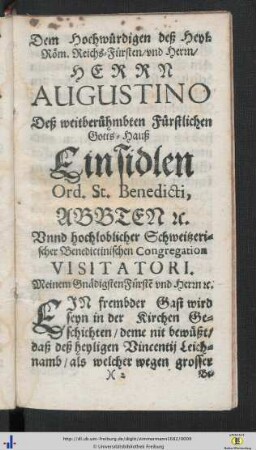 Dem Hochwürdigen deß Heyl.
Röm. Reichs-Fürsten/vnd Herrn/
HERRN
AUGUSTINO
Deß weitberühmbten Fürstlichen
Gotts-Hauß
Einsidlen
Ord. St. Benedicti,
ABBTEN ꝛc.
Vnnd hochloblicher Schweitzeri-
scher Benedictinischen Congregation
VISITATORI.
Meinem Gnädigsten Fürstē vnd Herrn ꝛc.
EIN frembder Gast wird
seyn in der Kirchen Ge-
schichten/ deme nit bewüßt/
daß deß heyligen Vincentij Leich-
namb/ als welcher wegen grosser
)( 2 Be-
http://dl.ub.uni-freiburg.de/diglit/zimmermann1682/0009
© Universitätsbibliothek Freiburg